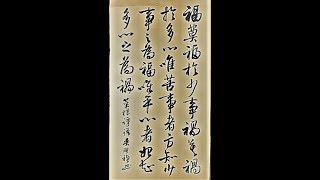 福莫福於少事禍莫禍
於多心唯苦事者方知少
事之為福唯平心者始知
多心之為禍 菜根譚語